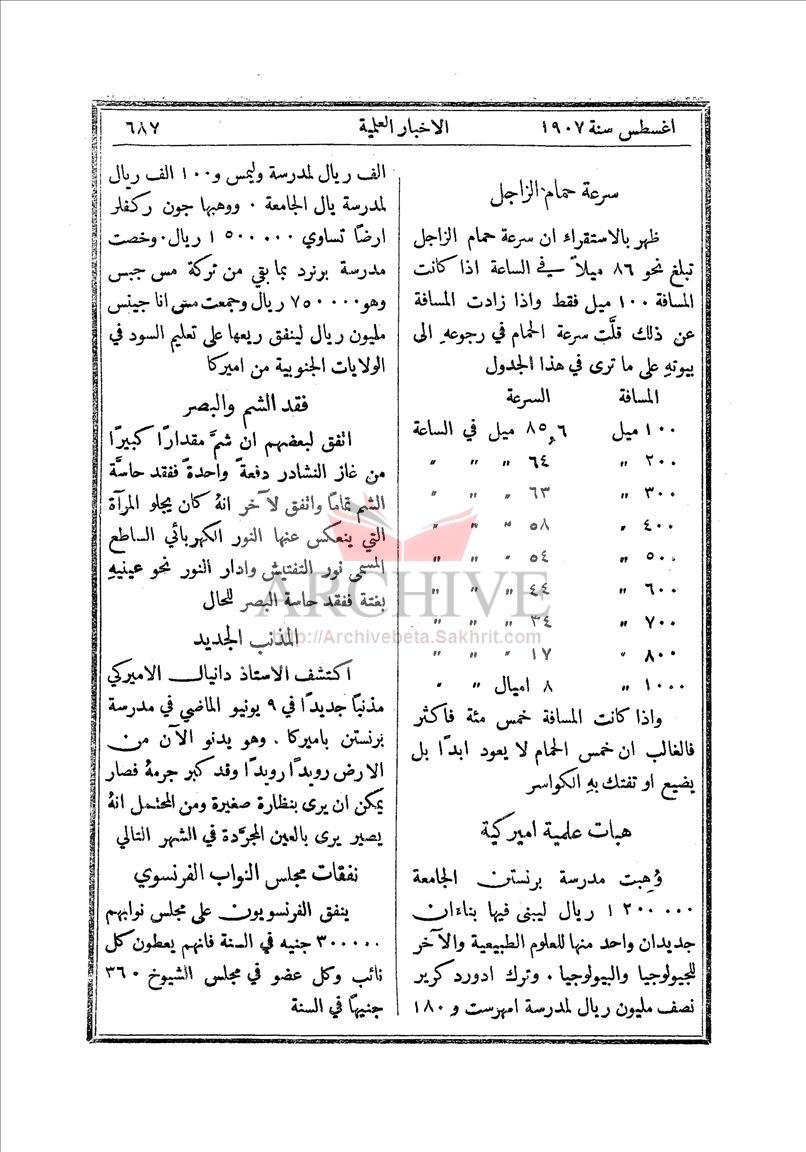 اغسطس سنة ١٩٠٧
الاخبار العلمية
٦٨٧
سرعة حمام الزاجل
ظهر بالاستقراء ان سرعة حمام الزاجل
تبلغ نحو ٨٦ ميلاً في الساعة اذا كانت
المسافة ١٠٠ ميل فقط واذا زادت المسافة
عن ذلك قلَّت سرعة الحمام في رجوعهِ الى
بيوتهِ على ما ترى في هذا الجدول
المسافة السرعة
١٠٠ ميل ٨٥٫٦ ميل في الساعة
٢٠٠ " ٦٤ " " "
٣٠٠ " ٦٣ " " "
٤٠٠ " ٥٨ " " "
٥٠٠ " ٥٤ " " "
٦٠٠ " ٤٤ " " "
٧٠٠ " ٣٤ " " "
٨٠٠ " ١٧ " " "
١٠٠٠ " ٨ اميال " "
واذا كانت المسافة خمس مئة فاكثر
فالغالب ان خمس الحمام لا يعود ابداً بل
يضيع او تفتك بهِ الكواسر
هبات علمية اميركية
وُهِبت مدرسة برنستن الجامعة
١٢٠٠٠٠٠ ريال ليبنى فيها بناءَان
جديدان واحد منها للعلوم الطبيعية والآخر
للجيولوجيا والبيولوجيا . وترك ادورد كرير
نصف مليون ريال لمدرسة امهرست و ١٨٠
الف ريال لمدرسة وليمس و١٠٠ الف ريال
لمدرسة يال الجامعة . ووهبها جون ركفلر
ارضاً تساوي ١٥٠٠٠٠٠ ريال. وخصت
مدرسة برنرد بما بقي من تركة مس جبس
وهو ٧٥٠٠٠٠ ريال وجمعت مس انا جينس
مليون ريال لينفق ريعها على تعليم السود في
الولايات الجنوبية من اميركا
فقد الشم والبصر
اتفق لبعضهم ان شمَّ مقداراً كبيراً
من غاز النشادر دفعةً واحدةً ففقد حاسَّة
الشم تماماً واتفق لآخر انهُ كان يجلو المرآة
التي ينعكس عنها النور الكهربائي الساطع
المسمى نور التفتيش وادار النور نحو عينيهِ
بغتة ففقد حاسة البصر للحال
المذنب الجديد
اكتشف الاستاذ دانيال الاميركي
مذنباً جديداً في ٩ يونيو الماضي في مدرسة
برنستن باميركا . وهو يدنو الآن من
الارض رويداً رويداً وقد كبر جرمهُ فصار
يمكن ان يرى بنظارة صغيرة ومن المحتمل انهُ
يصير يرى بالعين المجرَّدة في الشهر التالي
نفقات مجلس النواب الفرنسوي
ينفق الفرنسويون على مجلس نوابهم
٣٠٠٠٠٠ جنيه في السنة فانهم يعطون كل
نائب وكل عضو في مجلس الشيوخ ٣٦٠
جنيهاً في السنة
ARCHIVE
http://Archivebeta.Sakhrit.com